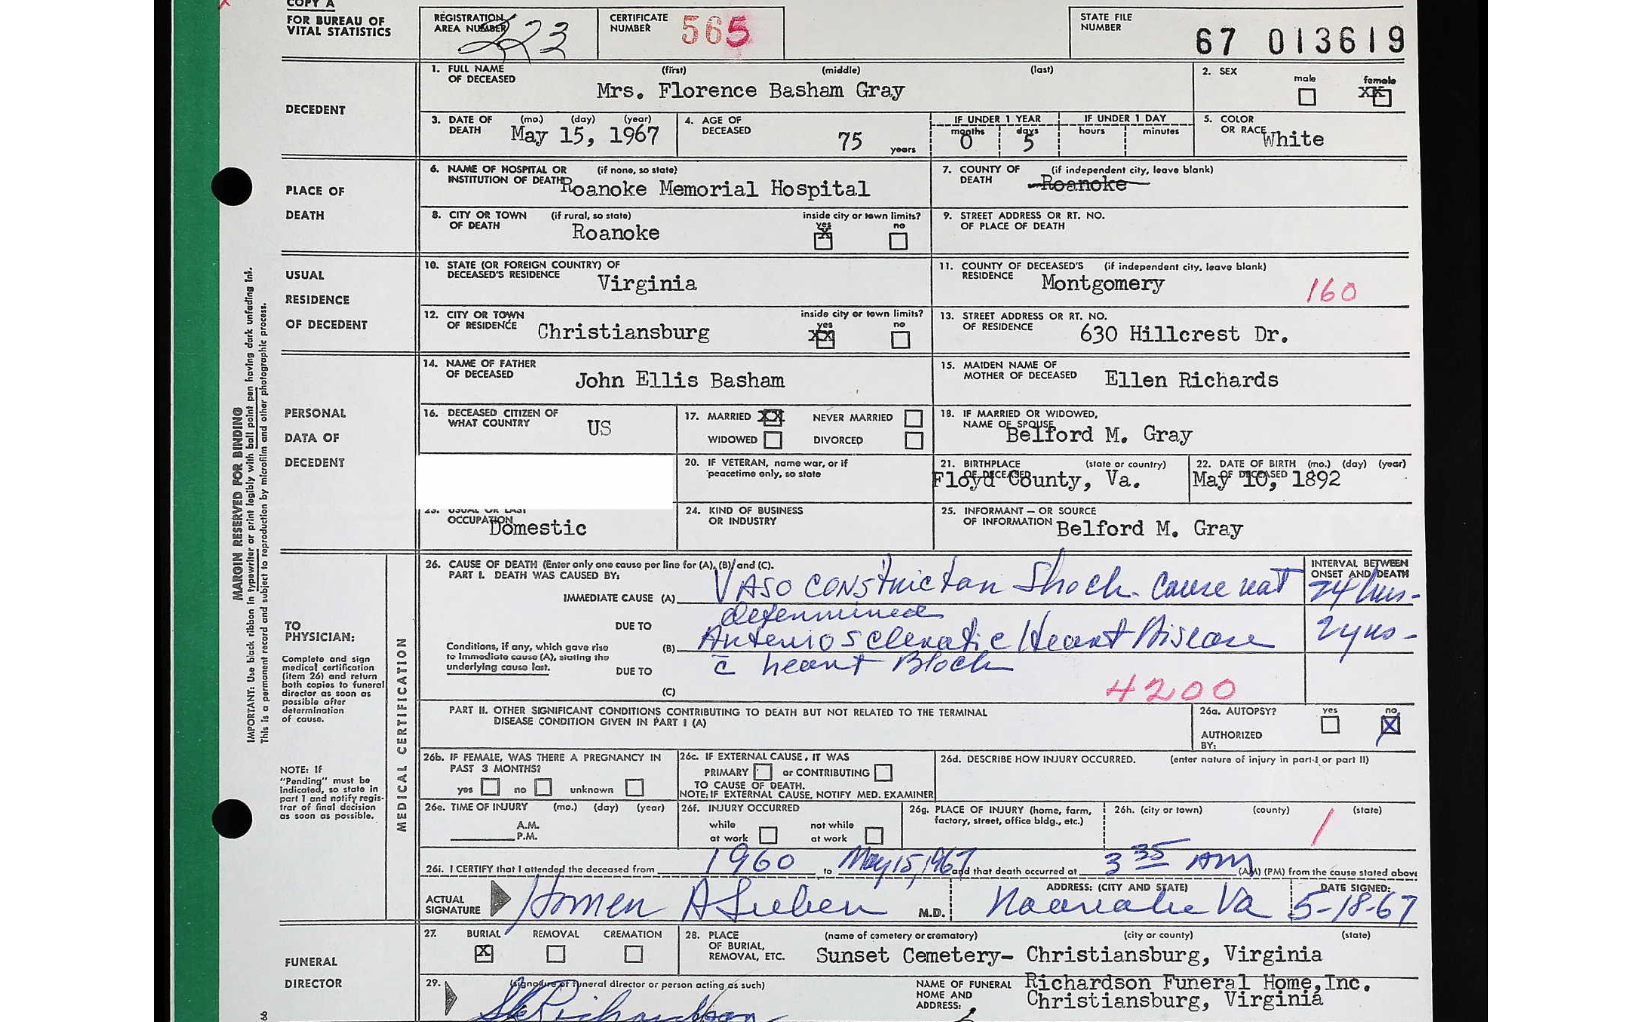 COPY A
FOR BUREAU OF
VITAL STATISTICS
REGISTRATION
AREA NUMBER 223
CERTIFICATE
NUMBER 565
STATE FILE
NUMBER 67 013619
DECEDENT
1. FULL NAME OF DECEASED (first) (middle) (last)
Mrs. Florence Basham Gray
2. SEX male female XX
3. DATE OF DEATH (mo.) (day) (year)
May 15, 1967
4. AGE OF DECEASED 75 years
IF UNDER 1 YEAR months 0 days 5
IF UNDER 1 DAY hours minutes
5. COLOR OR RACE White
PLACE OF
DEATH
6. NAME OF HOSPITAL OR INSTITUTION OF DEATH (if none, so state)
Roanoke Memorial Hospital
7. COUNTY OF DEATH (if independent city, leave blank)
Roanoke
8. CITY OR TOWN OF DEATH (if rural, so state)
Roanoke
inside city or town limits? yes X no
9. STREET ADDRESS OR RT. NO. OF PLACE OF DEATH
USUAL
RESIDENCE
OF DECEDENT
10. STATE (OR FOREIGN COUNTRY) OF DECEASED'S RESIDENCE
Virginia
11. COUNTY OF DECEASED'S RESIDENCE (if independent city, leave blank)
Montgomery 160
12. CITY OR TOWN OF RESIDENCE
Christiansburg
inside city or town limits? yes XX no
13. STREET ADDRESS OR RT. NO. OF RESIDENCE
630 Hillcrest Dr.
PERSONAL
DATA OF
DECEDENT
14. NAME OF FATHER OF DECEASED
John Ellis Basham
15. MAIDEN NAME OF MOTHER OF DECEASED
Ellen Richards
16. DECEASED CITIZEN OF WHAT COUNTRY
US
17. MARRIED XX NEVER MARRIED
WIDOWED DIVORCED
18. IF MARRIED OR WIDOWED, NAME OF SPOUSE
Belford M. Gray
20. IF VETERAN, name war, or if peacetime only, so state
21. BIRTHPLACE OF DECEASED (state or country)
Floyd County, Va.
22. DATE OF BIRTH OF DECEASED (mo.) (day) (year)
May 10, 1892
23. USUAL OR LAST OCCUPATION
Domestic
24. KIND OF BUSINESS OR INDUSTRY
25. INFORMANT — OR SOURCE OF INFORMATION
Belford M. Gray
MARGIN RESERVED FOR BINDING
IMPORTANT: Use black ribbon in typewriter or print legibly with ball point pen having dark unfading ink.
This is a permanent record and subject to reproduction by microfilm and other photographic process.
TO
PHYSICIAN:
Complete and sign
medical certification
(item 26) and return
both copies to funeral
director as soon as
possible after
determination
of cause.
NOTE: If
"Pending" must be
indicated, so state in
part I and notify regis-
trar of final decision
as soon as possible.
MEDICAL CERTIFICATION
26. CAUSE OF DEATH (Enter only one cause per line for (A), (B) and (C).
PART I. DEATH WAS CAUSED BY:
INTERVAL BETWEEN
ONSET AND DEATH
IMMEDIATE CAUSE (A) Vaso constriction Shock. Cause not 24 hrs-
DUE TO determined
(B) Arteriosclerotic Heart Disease 2 yrs-
Conditions, if any, which gave rise
to immediate cause (A), stating the
underlying cause last.
DUE TO c̄ heart Block
(C) 4200
PART II. OTHER SIGNIFICANT CONDITIONS CONTRIBUTING TO DEATH BUT NOT RELATED TO THE TERMINAL
DISEASE CONDITION GIVEN IN PART I (A)
26a. AUTOPSY? yes no X
AUTHORIZED
BY:
26b. IF FEMALE, WAS THERE A PREGNANCY IN
PAST 3 MONTHS?
yes no unknown
26c. IF EXTERNAL CAUSE, IT WAS
PRIMARY or CONTRIBUTING
TO CAUSE OF DEATH.
NOTE: IF EXTERNAL CAUSE, NOTIFY MED. EXAMINER
26d. DESCRIBE HOW INJURY OCCURRED. (enter nature of injury in part I or part II)
26e. TIME OF INJURY (mo.) (day) (year)
A.M.
P.M.
26f. INJURY OCCURRED
while at work not while at work
26g. PLACE OF INJURY (home, farm,
factory, street, office bldg., etc.)
26h. (city or town) (county) (state)
26i. I CERTIFY that I attended the deceased from 1960 to May 15, 1967 and that death occurred at 3 35 AM (AM) (PM) from the cause stated above
ACTUAL
SIGNATURE Homer A Sieber M.D.
ADDRESS: (CITY AND STATE)
Roanoke Va
DATE SIGNED:
5-18-67
FUNERAL
DIRECTOR
27. BURIAL X REMOVAL CREMATION
28. PLACE OF BURIAL, REMOVAL, ETC. (name of cemetery or crematory) (city or county) (state)
Sunset Cemetery- Christiansburg, Virginia
29. (signature of funeral director or person acting as such)
Richardson
NAME OF FUNERAL
HOME AND
ADDRESS:
Richardson Funeral Home,Inc.
Christiansburg, Virginia